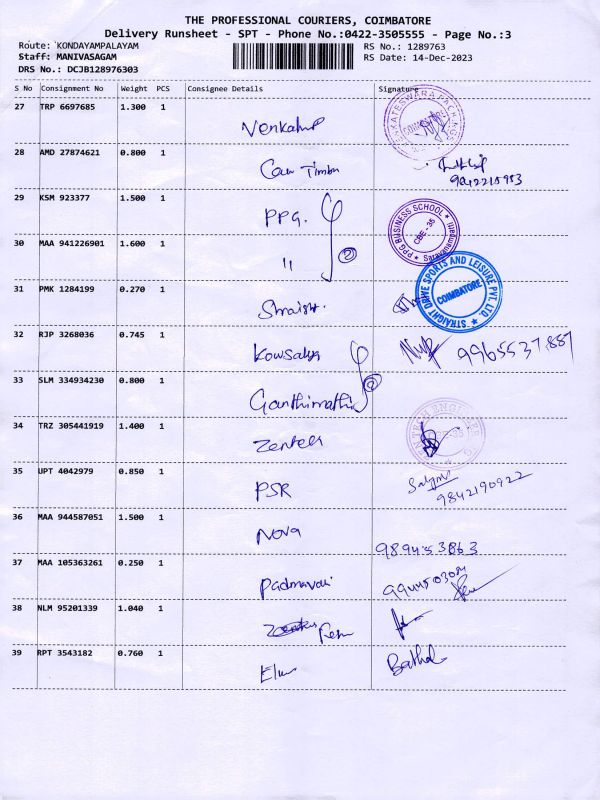 THE PROFESSIONAL COURIERS, COIMBATORE
Delivery Runsheet - SPT - Phone No.:0422-3505555 - Page No.:3
Route: KONDAYAMPALAYAM
RS No.: 1289763
Staff: MANIVASAGAM
RS Date: 14-Dec-2023
DRS No.: DCJB128976303
S No Consignment No Weight PCS Consignee Details Signature
27 TRP 6697685 1.300 1
28 AMD 27874621 0.800 1 Timber
29 KSM 923377 1.500 1 PPG.
PPG BUSINESS SCHOOL
CBE - 35
30 MAA 941226901 1.600 1 "
2
31 PMK 1284199 0.270 1 Straight.
STRAIGHT DRIVE SPORTS AND LEISURE PVT. LTD.
COIMBATORE
32 RJP 3268036 0.745 1 Kowsalya 9965537887
33 SLM 334934230 0.800 1 Ganthimathi
2
34 TRZ 305441919 1.400 1 Zentech
35 UPT 4042979 0.850 1 PSR 9842190922
36 MAA 944587051 1.500 1 Nova
37 MAA 105363261 0.250 1 Padmavati
38 NLM 95201339 1.040 1
39 RPT 3543182 0.760 1